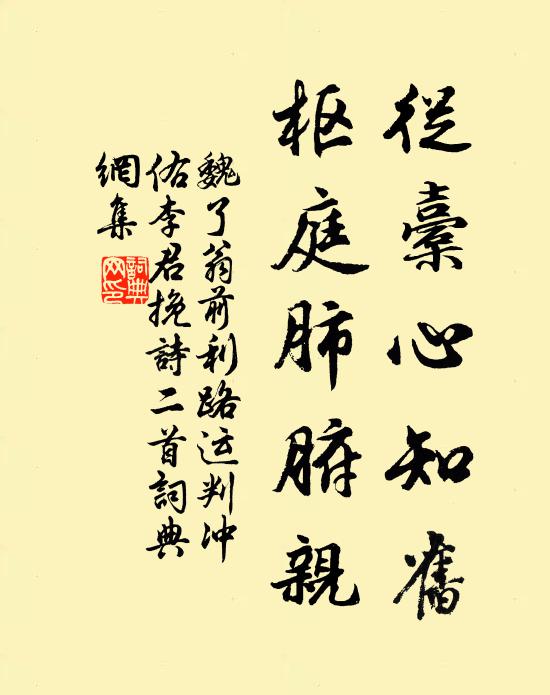 從橐心知舊
枢庭肺腑親
魏了翁前利路运判冲
佑李君挽詩二首詞典
網集
詞典
网印